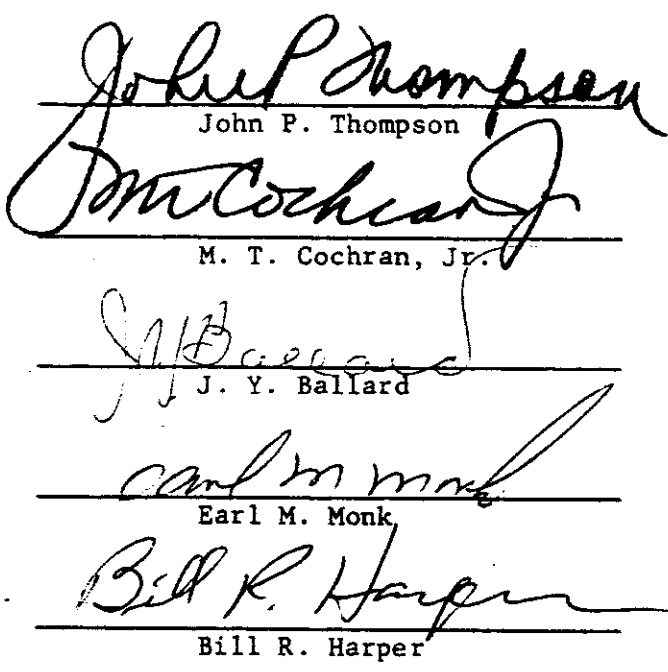 John P Thompson
John P. Thompson
M T Cochran Jr
M. T. Cochran, Jr.
J Y Ballard
J. Y. Ballard
Earl M Monk
Earl M. Monk
Bill R. Harper
Bill R. Harper